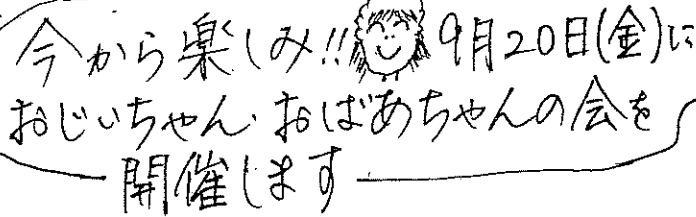 今から楽しみ!! 9月20日(金)に
おじいちゃん・おばあちゃんの会を
開催します